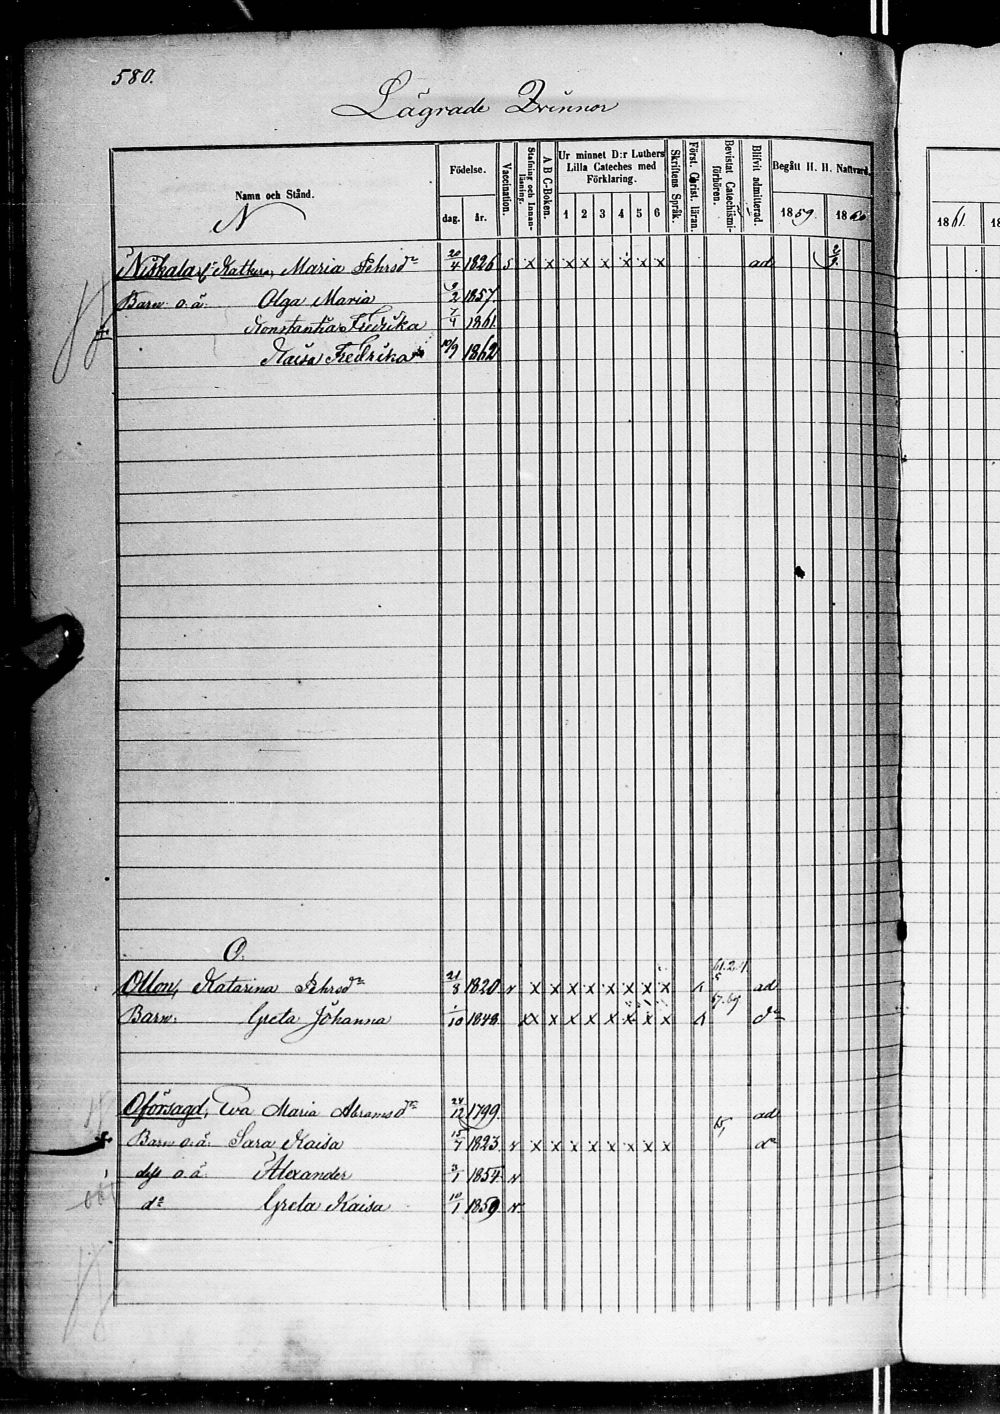 580.
Lägrade Qvinnor
Namn och Stånd.
N
Födelse.
dag. år.
Vaccination.
Stafning och Innanläsning.
A B C-Boken.
Ur minnet D:r Luthers Lilla Cateches med Förklaring.
1 2 3 4 5 6
Skriftens Språk.
Först. Christ. läran.
Bevistat Catechismiförhören.
Blifvit admitterad.
Begått H. H. Nattvard.
1859. 1860
1861. 18
Maria Pehrsdr 20/4 1826 s x x x x x x x x ad
Barn o.ä. Olga Maria 9/2 1857.
Konstantia Fredrika 7/4 1861
Kaisa Fredrika 10/9 1862
O.
61.2.4.
Ollon, Katarina Pehrsdr 21/8 1820 v x x x x x x x x ad
67.69
Barn: Greta Johanna /10 1848 x x x x x x x x do
Oförsagd, Eva Maria Abramsdr 24/12 1799. ad
65,
Barn o.ä. Sara Kaisa 15/7 1823 v x x x x x x x x do
dess o.ä. Alexander 3/1 1854 v
do Greta Kaisa 10/1 1859 v